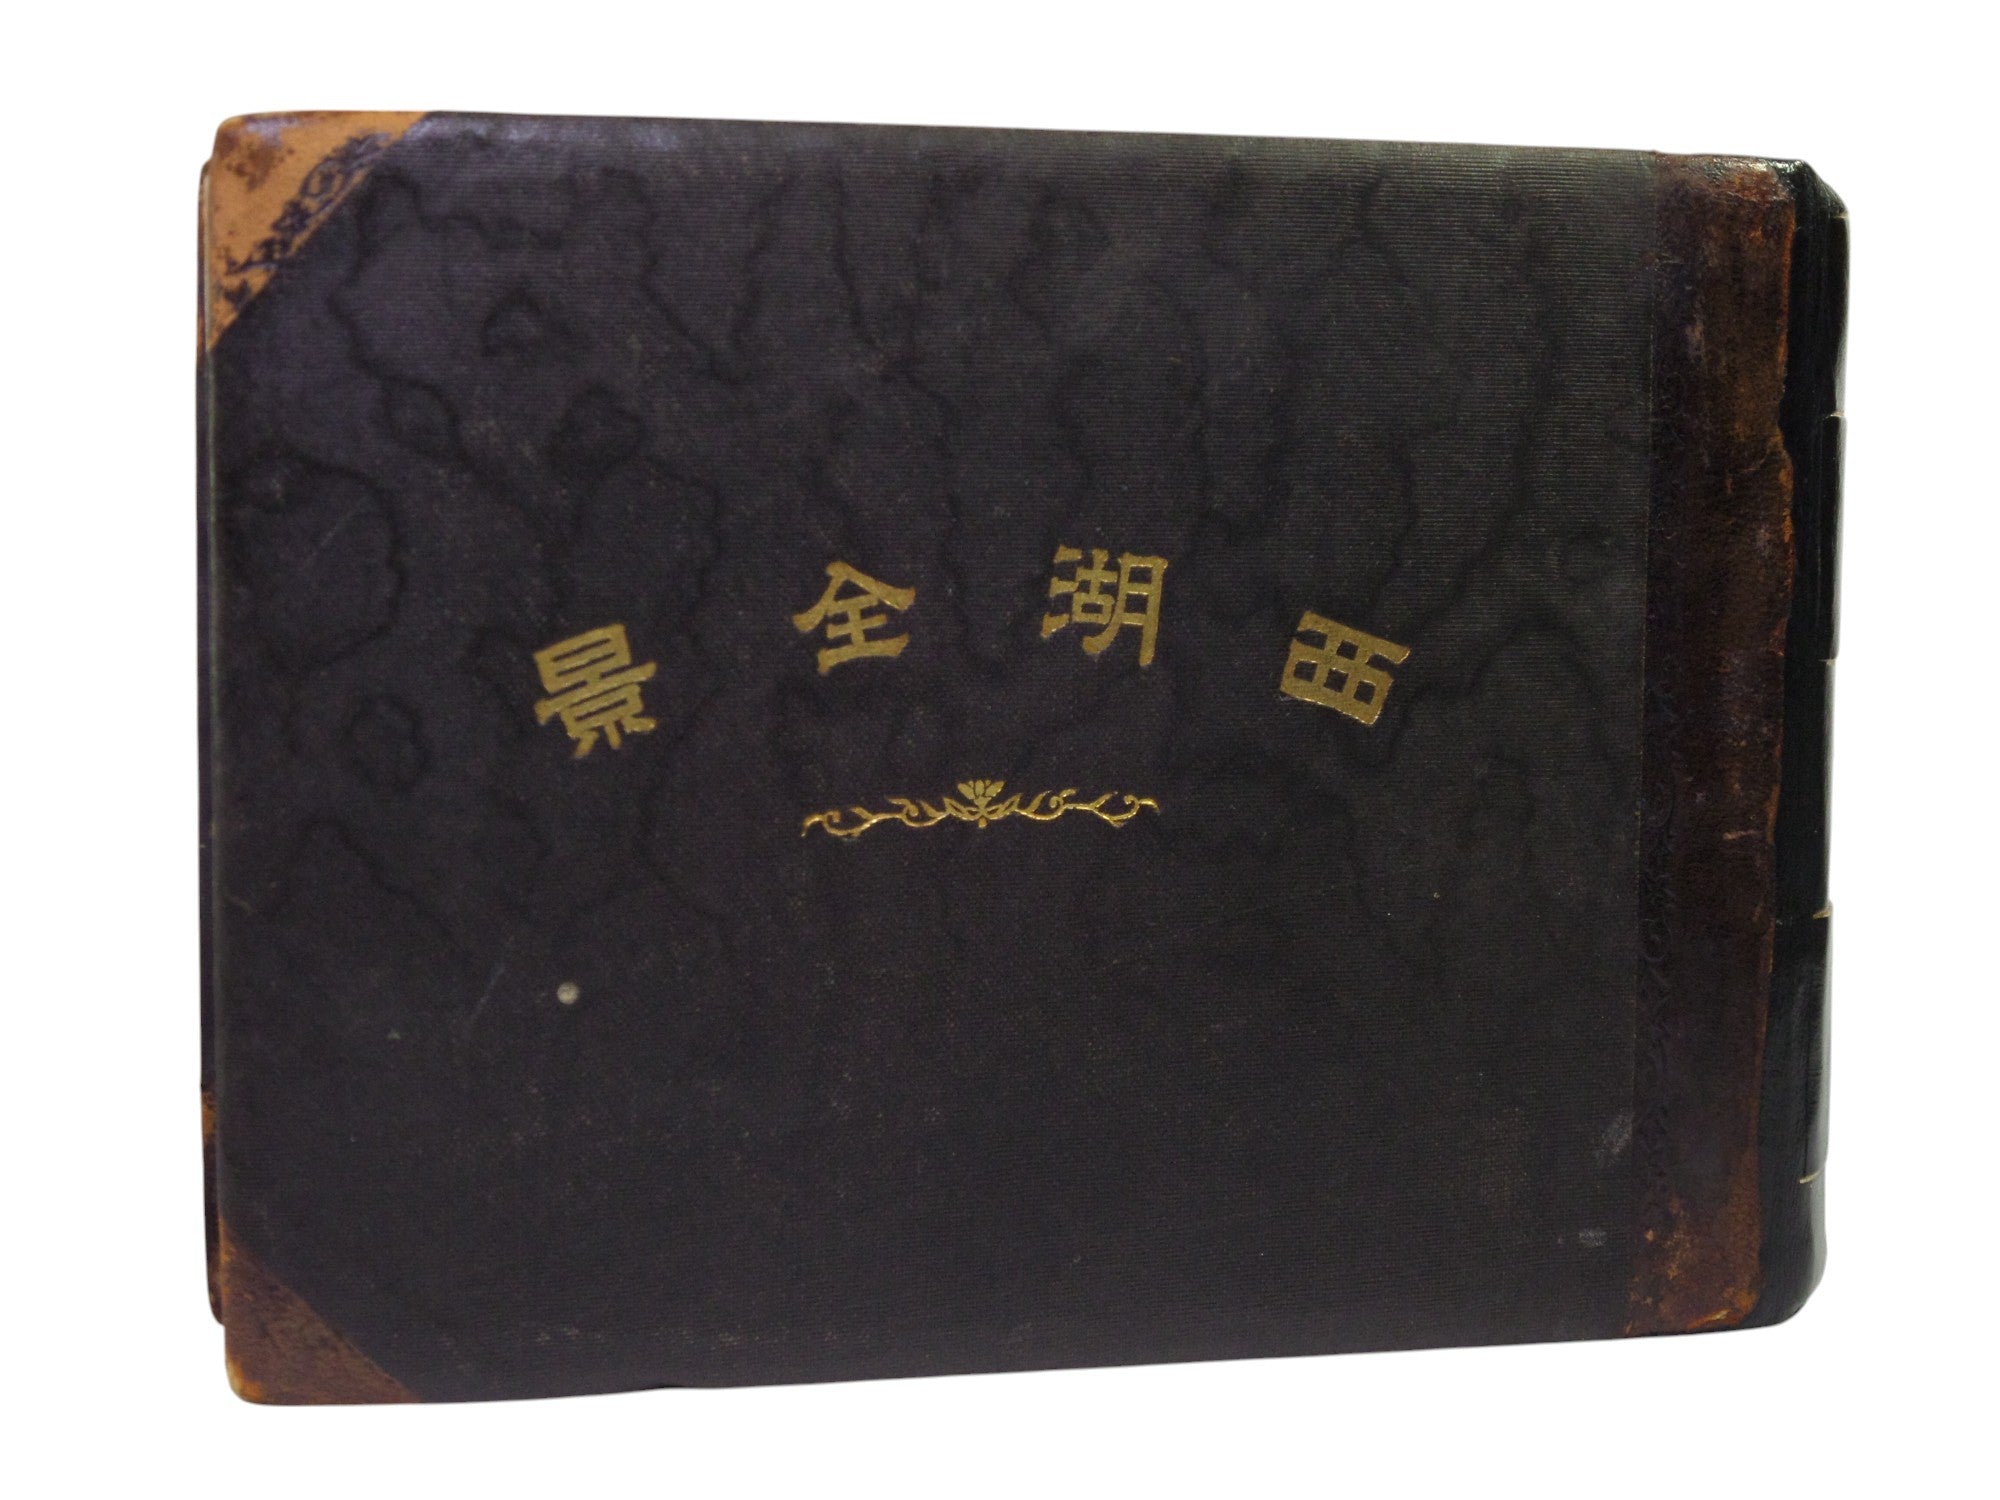 西湖全景